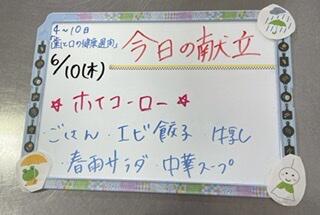 4～10日
「歯と口の健康週間」
今日の献立
6/10(木)
★ホイコーロー★
・ごはん・エビ餃子・牛乳
・春雨サラダ・中華スープ